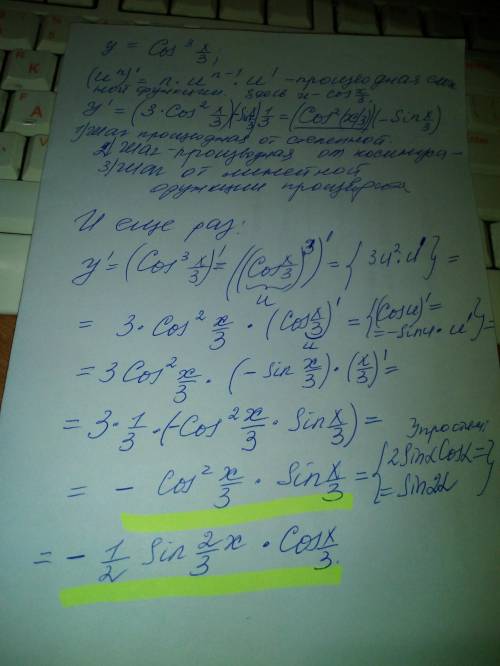 y = Cos³ x/3;
(uⁿ)' = n · uⁿ⁻¹ · u' - производная слож
ной функции. Здесь u - cos x/3.
y' = (3 · Cos² x/3)(-Sin x/3) 1/3 = (Cos² (x/3))(-Sin x/3)
1) Шаг производная от степенной
2) Шаг - производная от косинуса -
3) Шаг от линейной
функции
И еще раз:
y' = (Cos³ x/3)' = ((Cos x/3)³)' = {3u² · u'} =
u
= 3 · Cos² x/3 · (Cos x/3)' = {(Cos u)' = = -sin u · u'} =
u
= 3 Cos² x/3 · (-Sin x/3) · (x/3)' =
= 3 · 1/3 · (-Cos² x/3 · Sin x/3) =
= - Cos² x/3 · Sin x/3 = {2 Sinα Cosα = = Sin 2α}
= - 1/2 Sin 2/3 x · Cos x/3.